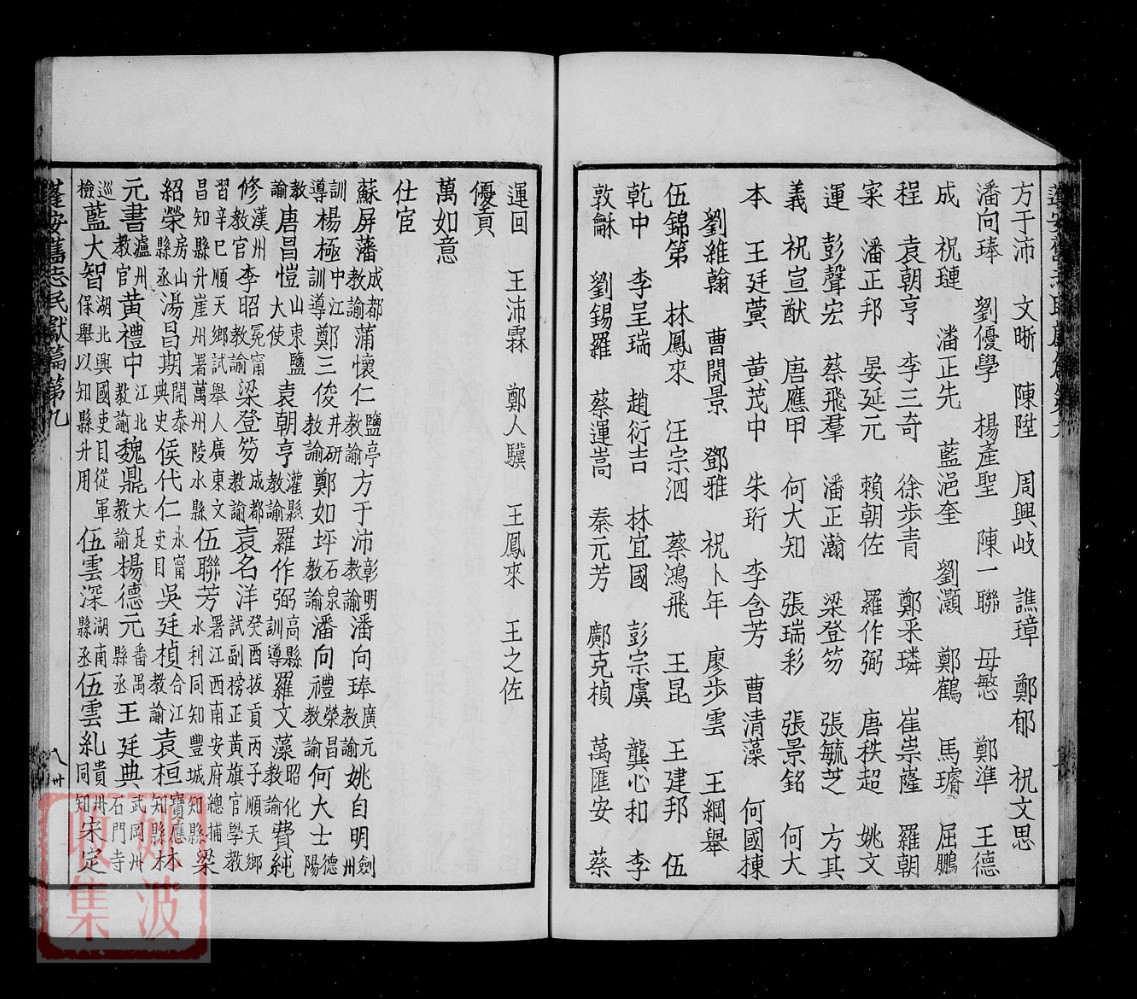 方于沛 文晰 陳陞 周興岐 譙璋 鄭郁 祝文思
潘向琫 劉優學 楊產聖 陳一聯 母慜 鄭準 王德
成 祝璉 潘正先 藍浥奎 劉灝 鄭鶴 馬璿 屈鵬
程 袁朝亨 李三奇 徐步青 鄭采璘 崔崇薩 羅朝
寀 潘正邦 晏延元 賴朝佐 羅作弼 唐秩超 姚文
運 彭聲宏 蔡飛羣 潘正瀚 梁登笏 張毓芝 方其
義 祝宣猷 唐應甲 何大知 張瑞彩 張景銘 何大
本 王廷蓂 黃茂中 朱珩 李含芳 曹清藻 何國棟
劉維翰 曹開景 鄧雅 祝卜年 廖步雲 王綱舉
伍錦第 林鳳來 汪宗泗 蔡鴻飛 王昆 王建邦 伍
乾中 李呈瑞 趙衍吉 林宜國 彭宗虞 龔心和 李
敦龢 劉錫羅 蔡運嵩 秦元芳 鄺克楨 萬匯安 蔡
運回 王沛霖 鄭人驥 王鳳來 王之佐
優貢
萬如意
仕宦
蘇屏藩成都教諭蒲懷仁鹽亭教諭方于沛彰明教諭潘向琫廣元教諭姚自明劍州
訓導楊極中江訓導鄭三俊井研教諭鄭如坪石泉教諭潘向禮榮昌教諭何大士德陽
教諭唐昌愷山東鹽大使袁朝亨灌縣教諭羅作弼高縣訓導羅文藻昭化教諭費純
修漢州教官李昭冕甯教諭梁登笏成都教諭袁名洋癸酉拔貢丙子順天鄉試副榜正黃旗官學教
習辛巳順天鄉試舉人廣東文昌知縣升崖州署萬州陵水縣伍聯芳署江西南安府總捕水利同知豐城知縣梁
紹榮房山縣丞湯昌期開泰典史侯代仁永甯吏目吳廷楨合江教諭袁桓寶應知縣林
元書瀘州教官黃禮中江北教諭魏鼎大足教諭楊德元番禺縣丞王廷典武岡州石門寺
巡檢藍大智湖北興國吏目從軍保舉以知縣升用伍雲深湖南縣丞伍雲糺貴州同知宋定
蓬安舊志民獻篇第九
八